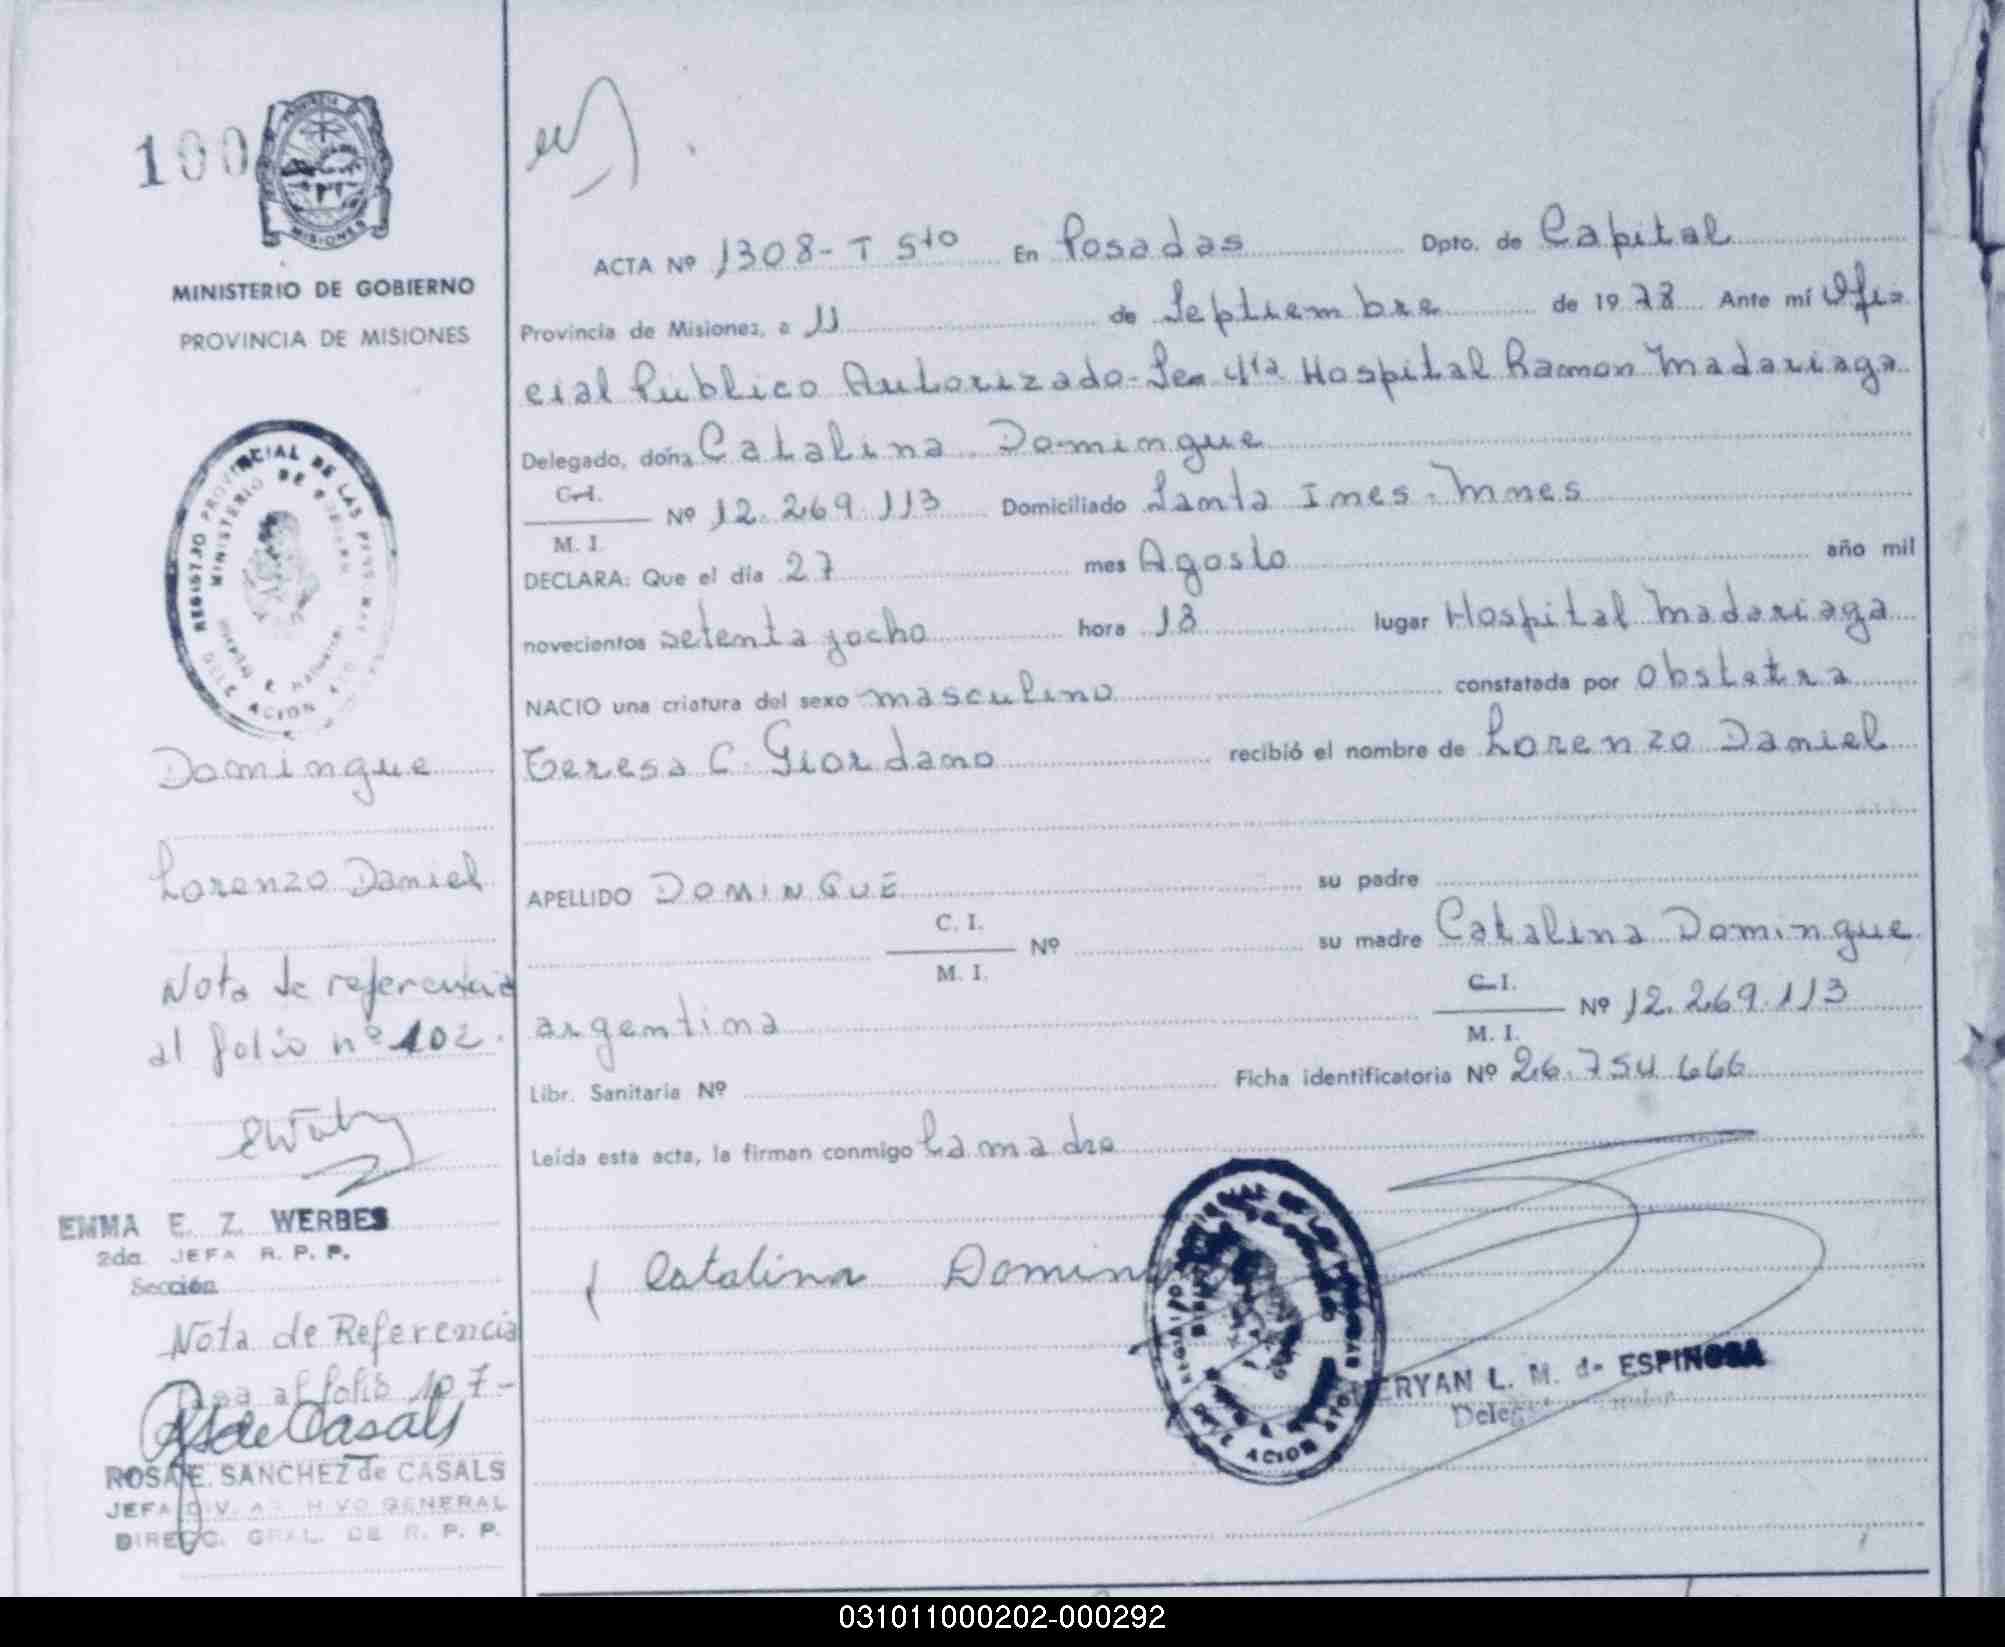 100
MISIONES
MINISTERIO DE GOBIERNO
PROVINCIA DE MISIONES
REGISTRO PROVINCIAL DE LAS PERSONAS
MINISTERIO DE GOBIERNO
Domingue
Lorenzo Daniel
Nota de referencia
al folio nº 102.
EMMA E. Z. WERBES
2da. JEFA R. P. P.
Sección
Nota de Referencia
Pasa al folio 107-
RS de Casals
ROSA E. SANCHEZ de CASALS
JEFA DIV. ARCHIVO GENERAL
DIRECC. GRAL. DE R. P. P.
ACTA Nº 1308-T 5to En Posadas Dpto. de Capital
Provincia de Misiones, a 11 de Septiembre de 1978 Ante mí Ofi-
cial Público Autorizado-Sec 4ta Hospital Ramon Madariaga
Delegado, doña Catalina Domingue
C.I.
M. I. Nº 12.269.113 Domiciliado Santa Ines-Mnes
DECLARA: Que el día 27 mes Agosto año mil
novecientos setenta y ocho hora 13 lugar Hospital Madariaga
NACIO una criatura del sexo masculino constatada por obstetra
Teresa C. Giordano recibió el nombre de Lorenzo Daniel
APELLIDO DOMINGUE su padre
C. I.
M. I. Nº su madre Catalina Domingue
argentina C.I.
M. I. Nº 12.269.113
Libr. Sanitaria Nº Ficha identificatoria Nº 26.754.666
Leída esta acta, la firman conmigo la madre
Catalina Doming
MERYAN L. M. de ESPINOSA
031011000202-000292